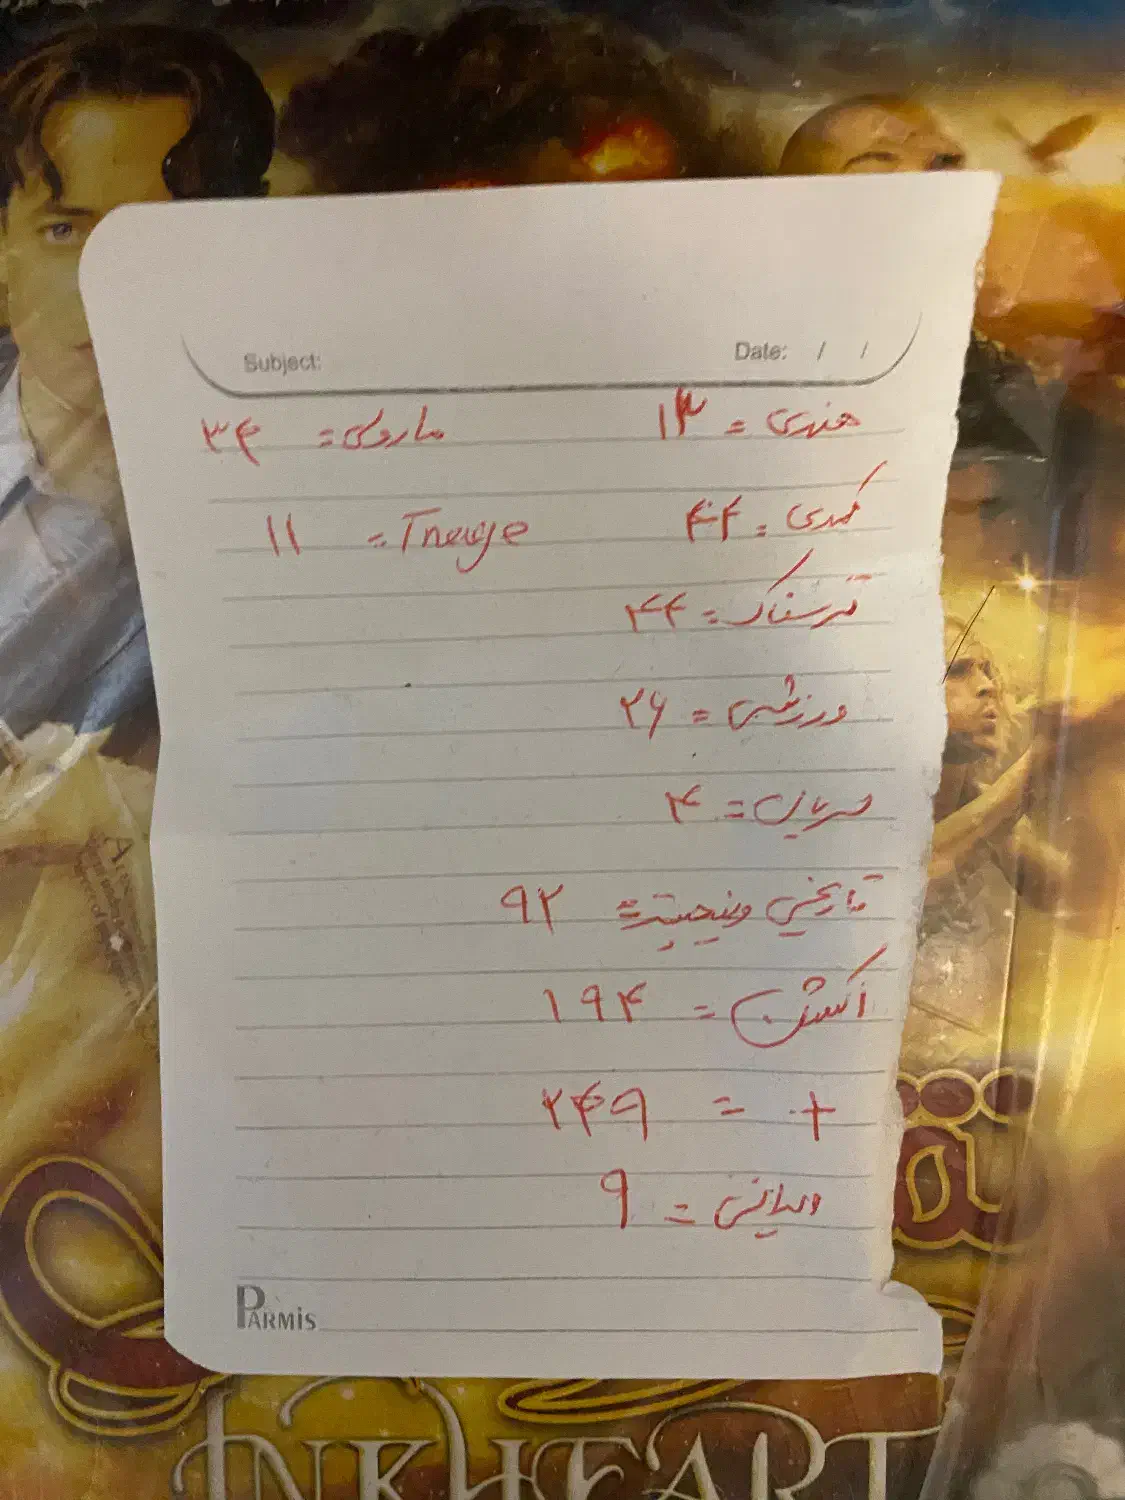 Subject: Date: / /
هنری = ۱۳ ماروکی = ۳۴
کمدی = ۴۴ Tneeye = ۱۱
ترسناک = ۴۴
ورزشی = ۲۶
سریال = ۴
تاریخی = ۹۲
اکشن = ۱۹۴
+ = ۲۴۹
= ۹
PARMIS
INKHEART